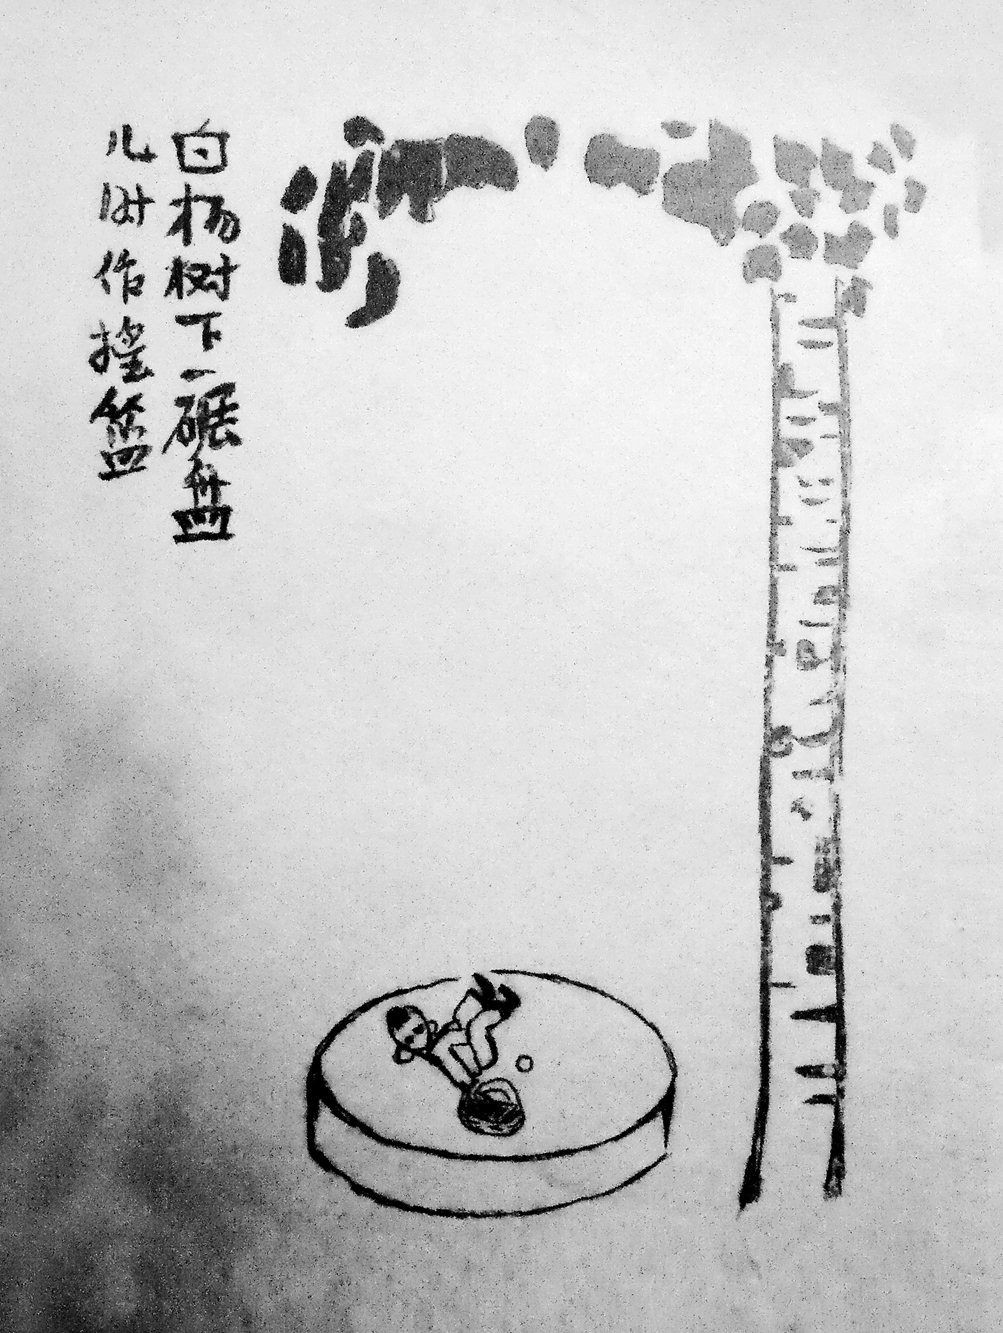 白杨树下一碾盘
儿时作摇篮